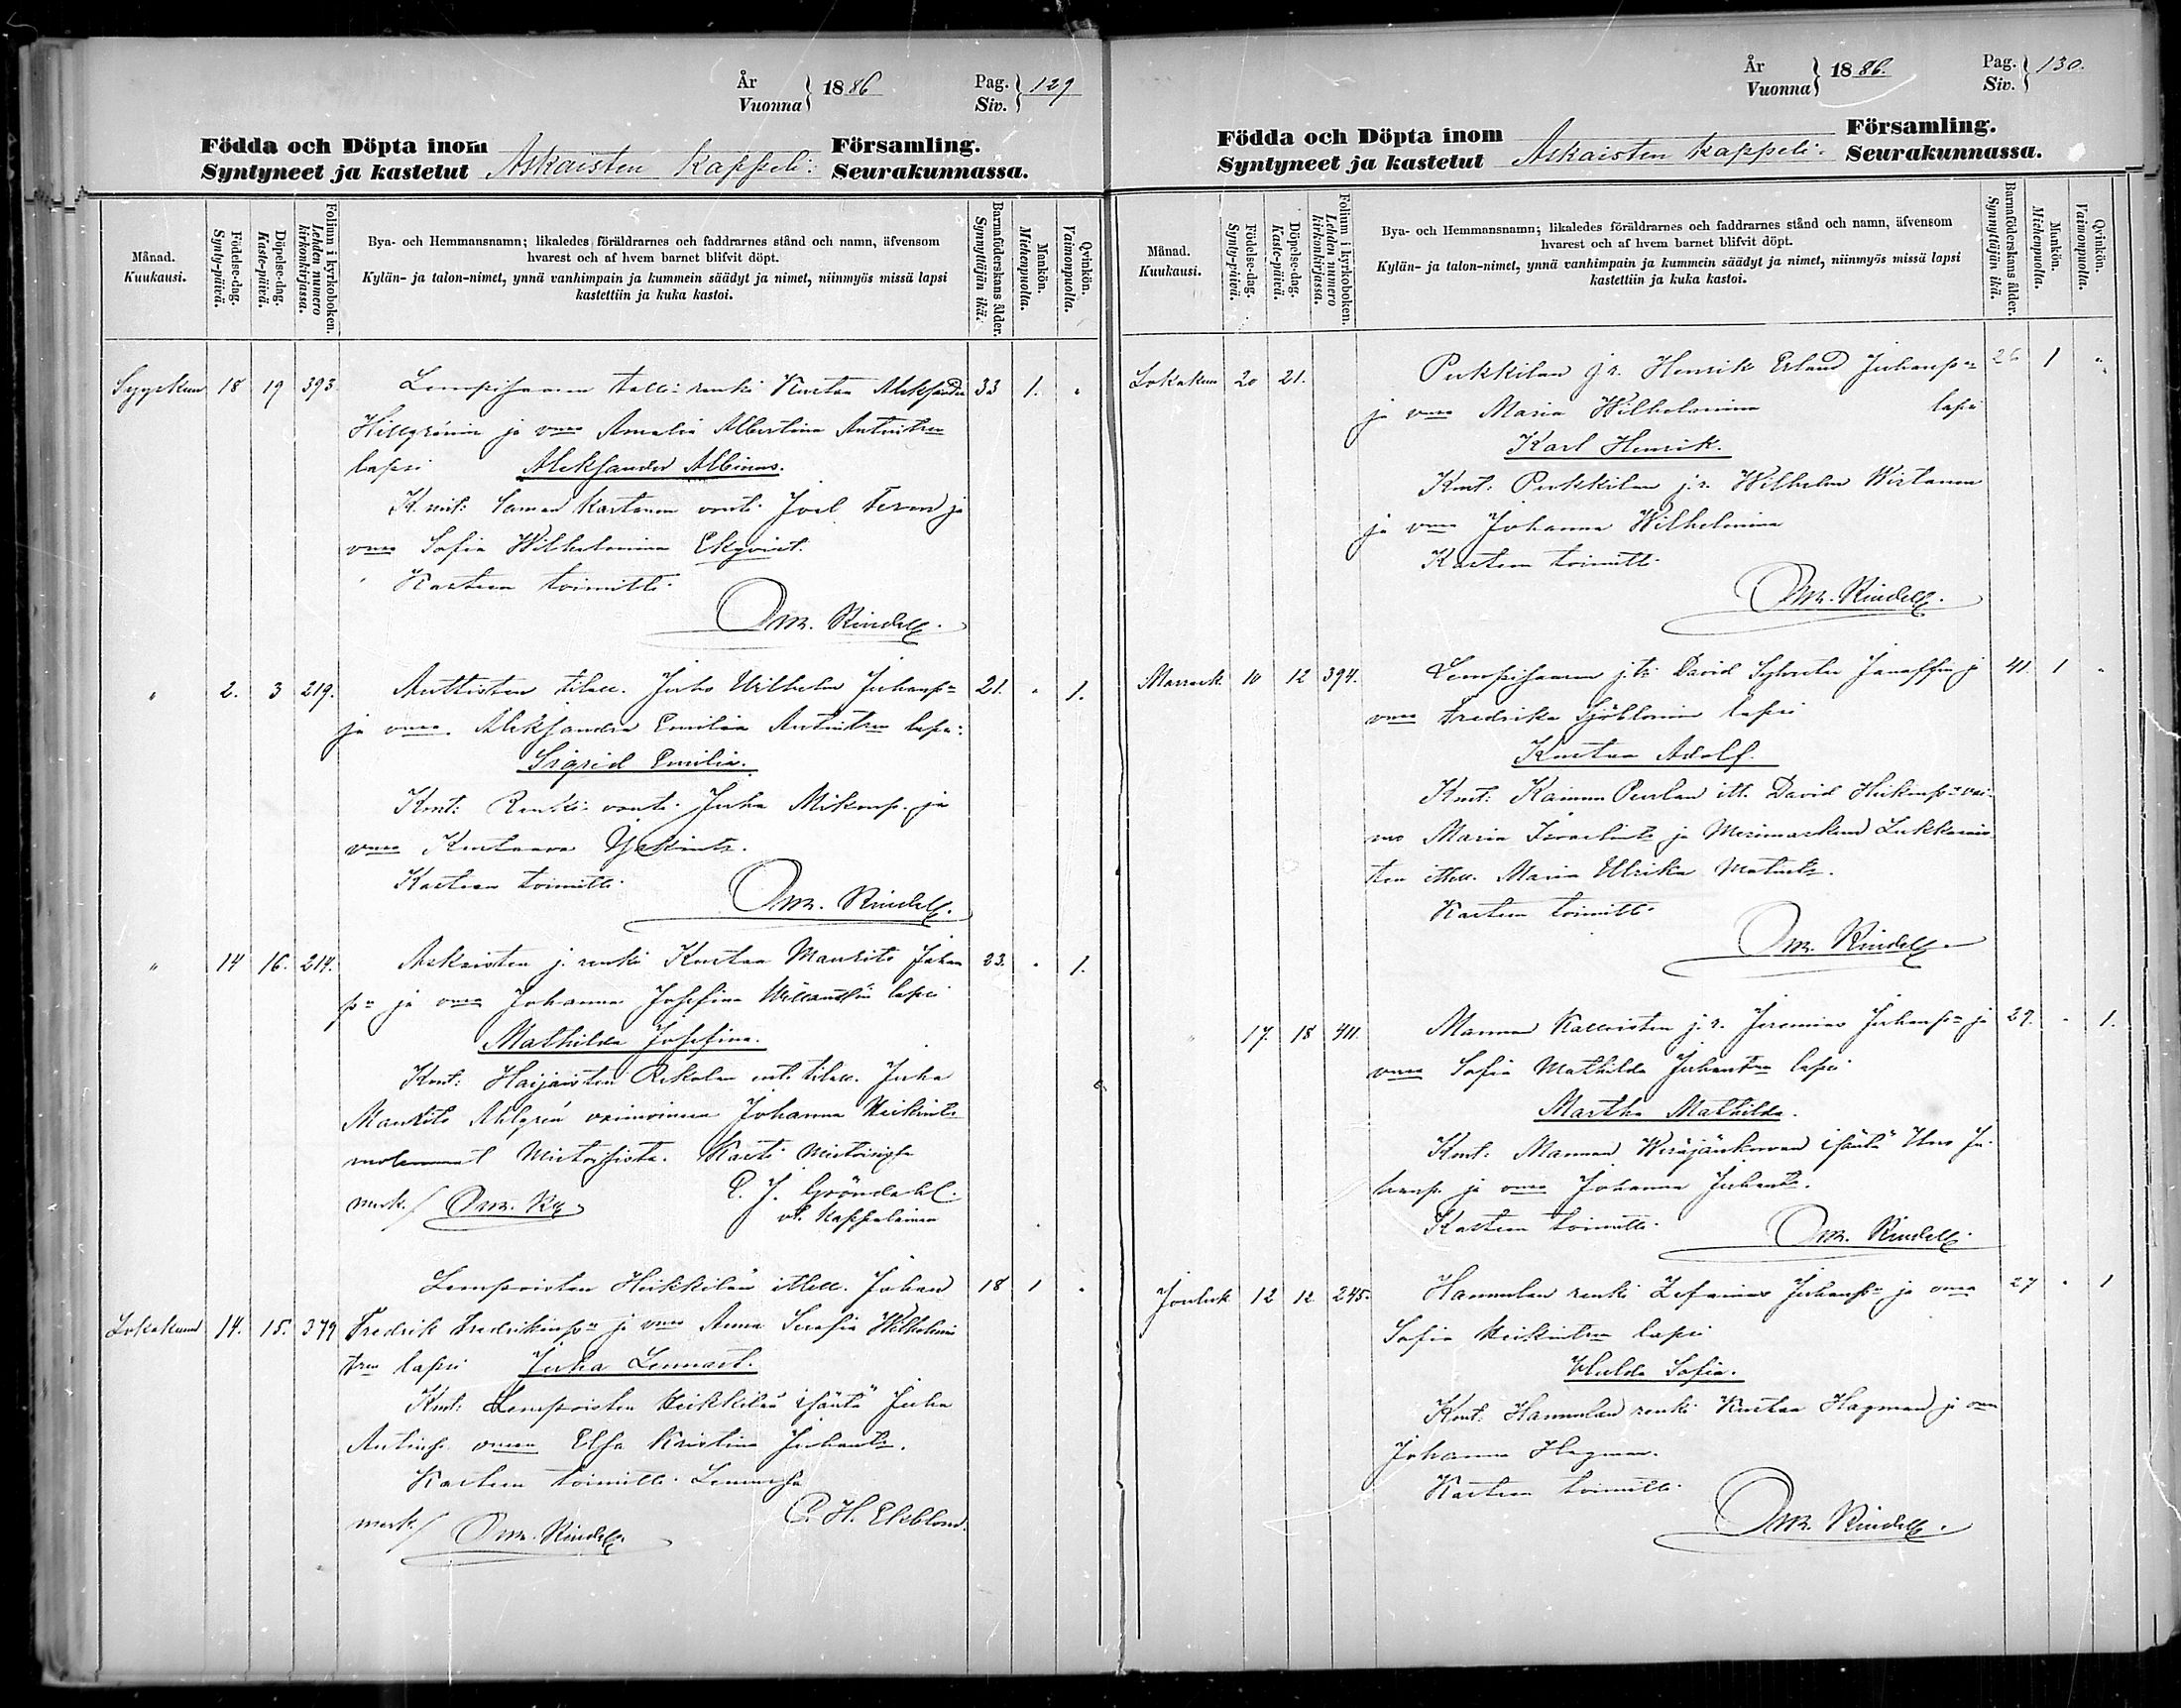 År
Vuonna } 1886 Pag.
Siv. } 129
Födda och Döpta inom
Syntyneet ja kastetut Askaisten Kappeli: Församling.
Seurakunnassa.
Månad.
Kuukausi.
Födelse-dag.
Synty-päivä.
Döpelse-dag.
Kaste-päivä.
Folium i kyrkoboken.
Lehden numero
kirkonkirjassa.
Bya- och Hemmansnamn; likaledes föräldrarnes och faddrarnes stånd och namn, äfvensom
hvarest och af hvem barnet blifvit döpt.
Kylän- ja talon-nimet, ynnä vanhimpain ja kummein säädyt ja nimet, niinmyös missä lapsi
kastettiin ja kuka kastoi.
Barnaföderskans ålder.
Synnyttäjän ikä.
Mankön.
Miehenpuolta.
Qvinkön.
Vaimonpuolta.
Syyskuu 18 19 393 Lempisaaren talli renki Kustaa Aleksander 33 1. "
Hillgrénin ja vmo Amalia Albertina Antintren
lapsi Aleksander Albinus.
Kmt: kartanon vouti Joel ja
vmo Sofia Wilhelmina Ekqvist.
Kasteen toimitti
Rindell.
" 2. 3 219. tilall. Juho Wilhelm Juhanp:n 21. " 1.
ja vmo. Aleksandra Emilia Antintren lapsi:
Sigrid Emilia.
Kmt: vouti Juha Mikonp. ja
vmo Kustaava
Kasteen toimitti
Rindell.
" 14 16. 214. Askaisten j. renki Kustaa Maurits Juhan 23. " 1.
p:n ja vmo Johanna Josefina lapsi
Mathilda Josefina.
Kmt: Haijaisten tilall. Juha
Maurits Ahlgrén vaimoineen Johanna Heikint:
molemmat Kasti
P. J. Gröndahl.
merk./
vt. Kappalainen
Lempoisten Heikkilän ittell. Johan 18 1 "
Lokakuu 14. 15. 379 Fredrik Fredrikinp:n ja vmo Anna Serafia Wilhelmin
tren lapsi Juha Lennart.
Kmt: Lempoisten Heikkilän isäntä Juha
Antinp. vmoo Elsa Kristina Juhant:.
Kasteen toimitti Lemussa
P. H. Ekblom.
merk./ Rindell.
År
Vuonna } 1886. Pag.
Siv. } 130.
Födda och Döpta inom
Syntyneet ja kastetut Askaisten kappeli. Församling.
Seurakunnassa.
Månad.
Kuukausi.
Födelse-dag.
Synty-päivä.
Döpelse-dag.
Kaste-päivä.
Folium i kyrkoboken.
Lehden numero
kirkonkirjassa.
Bya- och Hemmansnamn; likaledes föräldrarnes och faddrarnes stånd och namn, äfvensom
hvarest och af hvem barnet blifvit döpt.
Kylän- ja talon-nimet, ynnä vanhimpain ja kummein säädyt ja nimet, niinmyös missä lapsi
kastettiin ja kuka kastoi.
Barnaföderskans ålder.
Synnyttäjän ikä.
Mankön.
Miehenpuolta.
Qvinkön.
Vaimonpuolta.
Lokakuu 20 21. Pukkilan j.r. Henrik Erland Juhanp:n 26 1 "
ja vmo Maria Wilhelmina lapsi
Karl Henrik.
Kmt. Pukkilan j.r. Wilhelm Wirtanen
ja vmo Johanna Wilhelmina
Kasteen toimitti
Rindell.
Marrask. 10 12 394. Lempisaaren David Sylvester ja 41. 1 "
vmo Fredrika Sjöblomin lapsi
Kustaa Adolf.
Kmt: itt. David Heikinp:n vai-
mo Maria ja Merimaskun
ten ittell. Maria Ulrika Matint:.
Kasteen toimitti
Rindell.
" 17. 18 411. Mannun j.r. Jeremias Juhanp:n ja 27. " 1.
vmo Sofia Mathilda Juhantren lapsi
Martha Mathilda.
Kmt: Mannun isäntä Ju-
hanp. ja vmo Johanna Juhant:.
Kasteen toimitti
Rindell.
Jouluk. 12 12 245. Hannulan renki Zefanias Juhanp:n ja vmo 27 " 1
Sofia Heikintren lapsi
Hulda Sofia.
Kmt. Hannulan renki Kustaa Hagman ja vmo
Johanna Hagman.
Kasteen toimitti
Rindell.